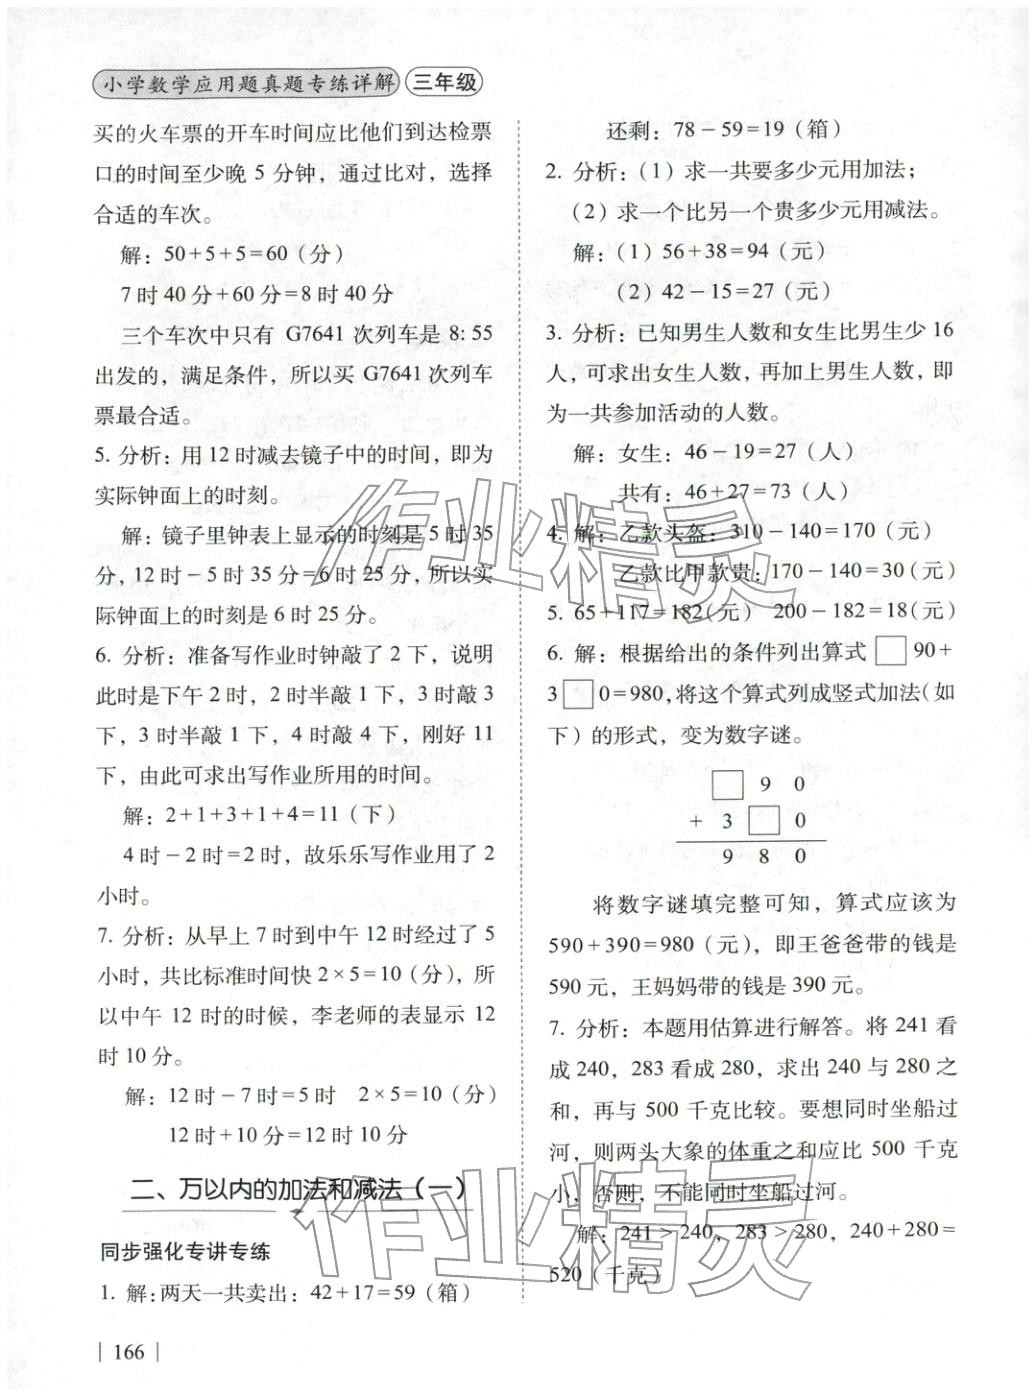 小学数学应用题真题专练详解 三年级
买的火车票的开车时间应比他们到达检票
口的时间至少晚 5 分钟，通过比对，选择
合适的车次。
解：50+5+5=60（分）
7 时 40 分+60 分=8 时 40 分
三个车次中只有 G7641 次列车是 8：55
出发的，满足条件，所以买 G7641 次列车
票最合适。
5. 分析：用 12 时减去镜子中的时间，即为
实际钟面上的时刻。
解：镜子里钟表上显示的时刻是 5 时 35
分，12 时－5 时 35 分=6 时 25 分，所以实
际钟面上的时刻是 6 时 25 分。
6. 分析：准备写作业时钟敲了 2 下，说明
此时是下午 2 时，2 时半敲 1 下，3 时敲 3
下，3 时半敲 1 下，4 时敲 4 下，刚好 11
下，由此可求出写作业所用的时间。
解：2+1+3+1+4=11（下）
4 时－2 时=2 时，故乐乐写作业用了 2
小时。
7. 分析：从早上 7 时到中午 12 时经过了 5
小时，共比标准时间快 2×5=10（分），所
以中午 12 时的时候，李老师的表显示 12
时 10 分。
解：12 时－7 时=5 时 2×5=10（分）
12 时+10 分=12 时 10 分
二、万以内的加法和减法（一）
同步强化专讲专练
1. 解：两天一共卖出：42+17=59（箱）
还剩：78－59=19（箱）
2. 分析：（1）求一共要多少元用加法；
（2）求一个比另一个贵多少元用减法。
解：（1）56+38=94（元）
（2）42－15=27（元）
3. 分析：已知男生人数和女生比男生少 16
人，可求出女生人数，再加上男生人数，即
为一共参加活动的人数。
解：女生：46－19=27（人）
共有：46+27=73（人）
4. 解：乙款头盔：310－140=170（元）
乙款比甲款贵：170－140=30（元）
5. 65+117=182（元） 200－182=18（元）
6. 解：根据给出的条件列出算式□90+
3□0=980，将这个算式列成竖式加法（如
下）的形式，变为数字谜。
□ 9 0
+ 3 □ 0
9 8 0
将数字谜填完整可知，算式应该为
590+390=980（元），即王爸爸带的钱是
590 元，王妈妈带的钱是 390 元。
7. 分析：本题用估算进行解答。将 241 看
成 240，283 看成 280，求出 240 与 280 之
和，再与 500 千克比较。要想同时坐船过
河，则两头大象的体重之和应比 500 千克
小，否则，不能同时坐船过河。
解：241＞240，283＞280，240+280=
520（千克）
作业精灵
作业精灵
| 166 |